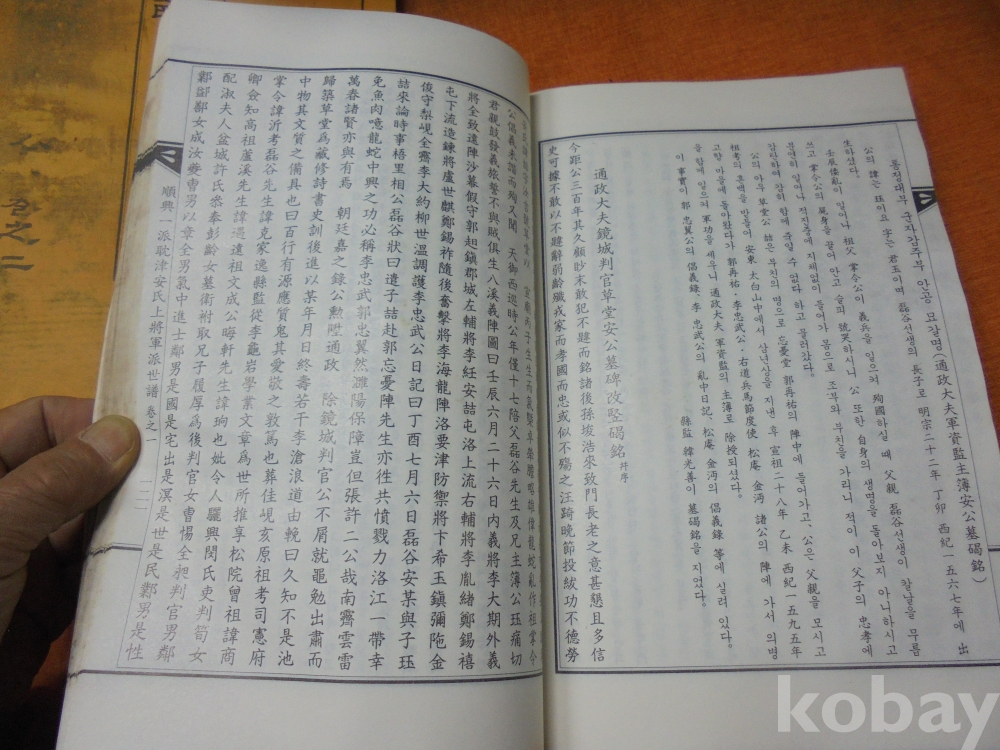 통정대부 군자감주부 안공 묘갈명(通政大夫軍資監主簿安公墓碣銘)
公의 諱는 珏이요 字는 君玉이며 磊谷선생의 長子로 明宗二十二年 丁卯 西紀一五六七年에 出
생하셨다.
壬辰倭亂이 일어나 祖父 掌令公이 義兵을 일으켜 殉國하실 때 父親 磊谷선생이 칼날을 무릅
쓰고 掌令公의 屍身을 끌어 안고 슬피 號哭하시니 公 또한 自身의 生命을 돌아보지 아니하시고
분연히 일어나 적지중에 지체없이 들어가 몸으로 조부와 부친을 가리니 적이 이 父子의 忠孝에
감탄하여 감히 함께 죽일 수 없다 하고 물러갔다.
公의 아우 草堂公 喆은 부친의 명으로 忘憂堂 郭再祐의 陣中에 들어가고、公은 父親을 모시고
祖考의 魂帛을 받들고 安東 太白山中에서 삼년상을 지낸 후 宣祖二十八年 乙未 西紀一五九五年
고향 마을에 돌아왔다가 郭再祐・李忠武公・右道兵馬節度使 松庵 金沔 諸公의 陣에 가서 의병
을 함께 일으켜 軍功을 세우니 通政大夫 軍資監의 主簿로 除授되셨다。
이 事實이 郭忠翼公의 倡義錄、李忠武公의 亂中日記、松庵 金沔의 倡義錄 等에 실려 있다。
縣監 韓光善이 墓碣銘을 지었다。
通政大夫鏡城判官草堂安公墓碑改竪碣銘 幷序
今距公三百年其久顧眇末敢犯不韙而銘諸後孫埈浩來致門長老之意甚懇且多信
史可據不敢以不韙辭弱齡殲戎家而孝國而忠或似不殤之汪踦晩節投紱功不德勞
公倡義未諧而殉又聞 天御西巡時公年僅十七陪父磊谷先生及兄主簿公珏痛切
君親鼓發義旅誓不與賊俱生八溪義陣圖曰壬辰六月二十六日內義將李大期外義
將全致遠陣沙幕假守郭趄鎭郡城左輔將李紝安喆屯洛上流右輔將李胤緖鄭錫禧
屯下流造鍊將盧世麒鄭錫祚隨後奮擊將李海龍陣洛要津防禦將卞希玉鎭彌陁金
俊守梨峴全霽李大約柳世溫調護李忠武公日記曰丁酉七月六日磊谷安某與子珏
喆來論時事梧里相公磊谷狀曰遣子喆赴郭忘憂陣先生亦徃共憤戮力洛江一帶幸
免魚肉噫龍蛇中興之功必稱李忠武郭忠翼然雖陽保障豈但張許二公哉南霽雲雷
萬春諸賢亦與有焉 朝廷嘉之錄公勲陞通政 除鏡城判官公不屑就黽勉出肅而
歸築草堂爲藏修詩書史訓後進以某年月日終壽若干李滄浪道由輓曰久知不是池
中物其文質之備具也曰百行有源應質鬼其愛敬之敦篤也葬佳峴亥原祖考司憲府
掌令諱沂考磊谷先生諱克家逸縣監從李龜岩學業文章爲世所推享松院曾祖諱商
卿僉知高祖蘆溪先生諱遇遠祖文成公晦軒先生諱珦也妣令人驪興閔氏吏判荀女
配淑夫人盆城許氏叅奉彭齡女墓術祔取兄子履厚爲後判官女曹惕全㫤判官男鄰
鄴鄙鄰女成汝夔曹男以章全男氣中進士鄰男是國是宅出是溟是世是民鄴男是性
順興一派耽津安氏上將軍派世譜 卷之一
一二一
卷之二
kobay